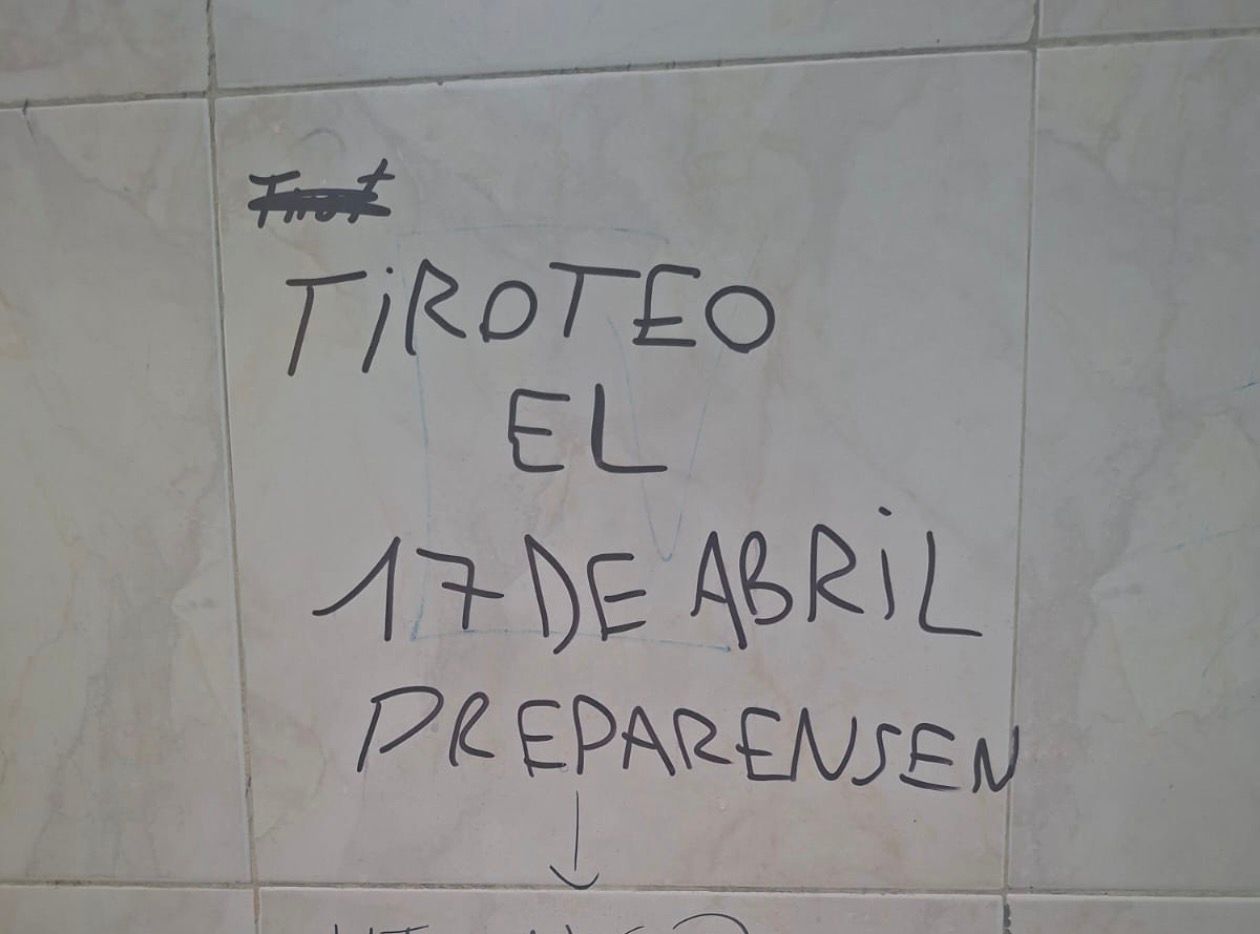 Tirot
TiROTEO
EL
17 DE ABRiL
PREPARENSEN